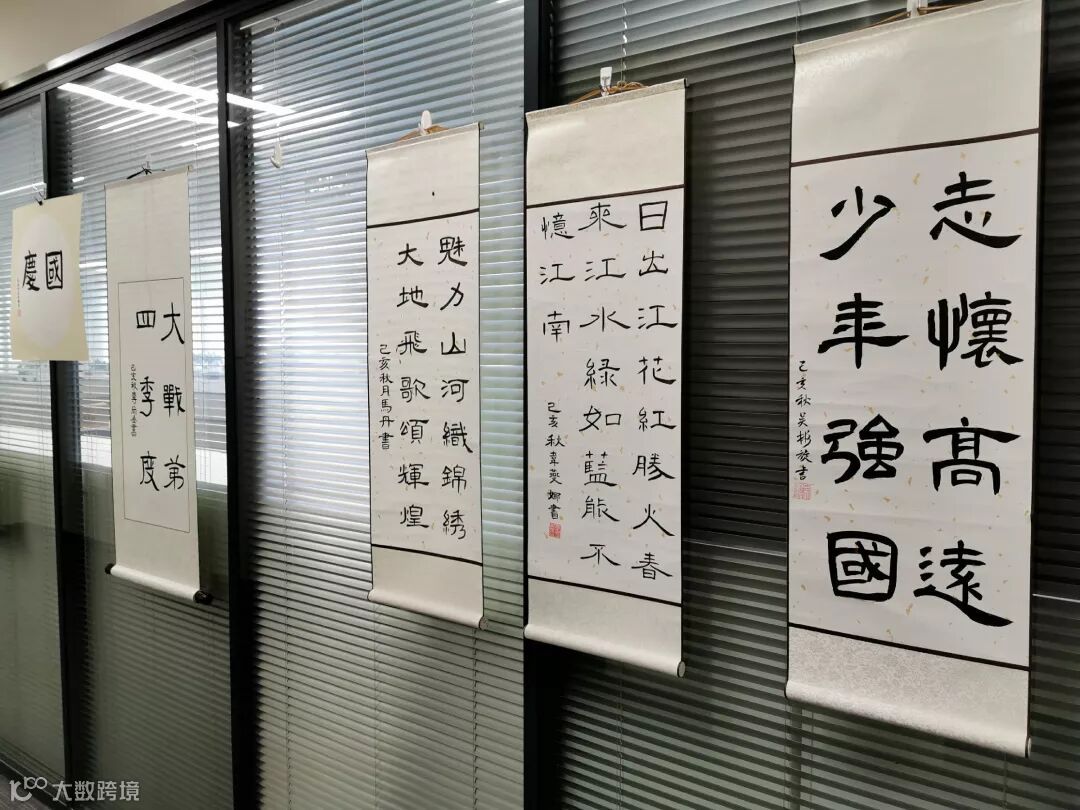 志懷高遠
少年強國
己亥秋吴彬旋書
日出江花紅勝火春
來江水緑如藍能不
憶江南
己亥秋韋燕娜書
魅力山河織錦綉
大地飛歌頌輝煌
己亥秋月馬丹書
大戰第
四季度
己亥秋
國
慶
大数跨境